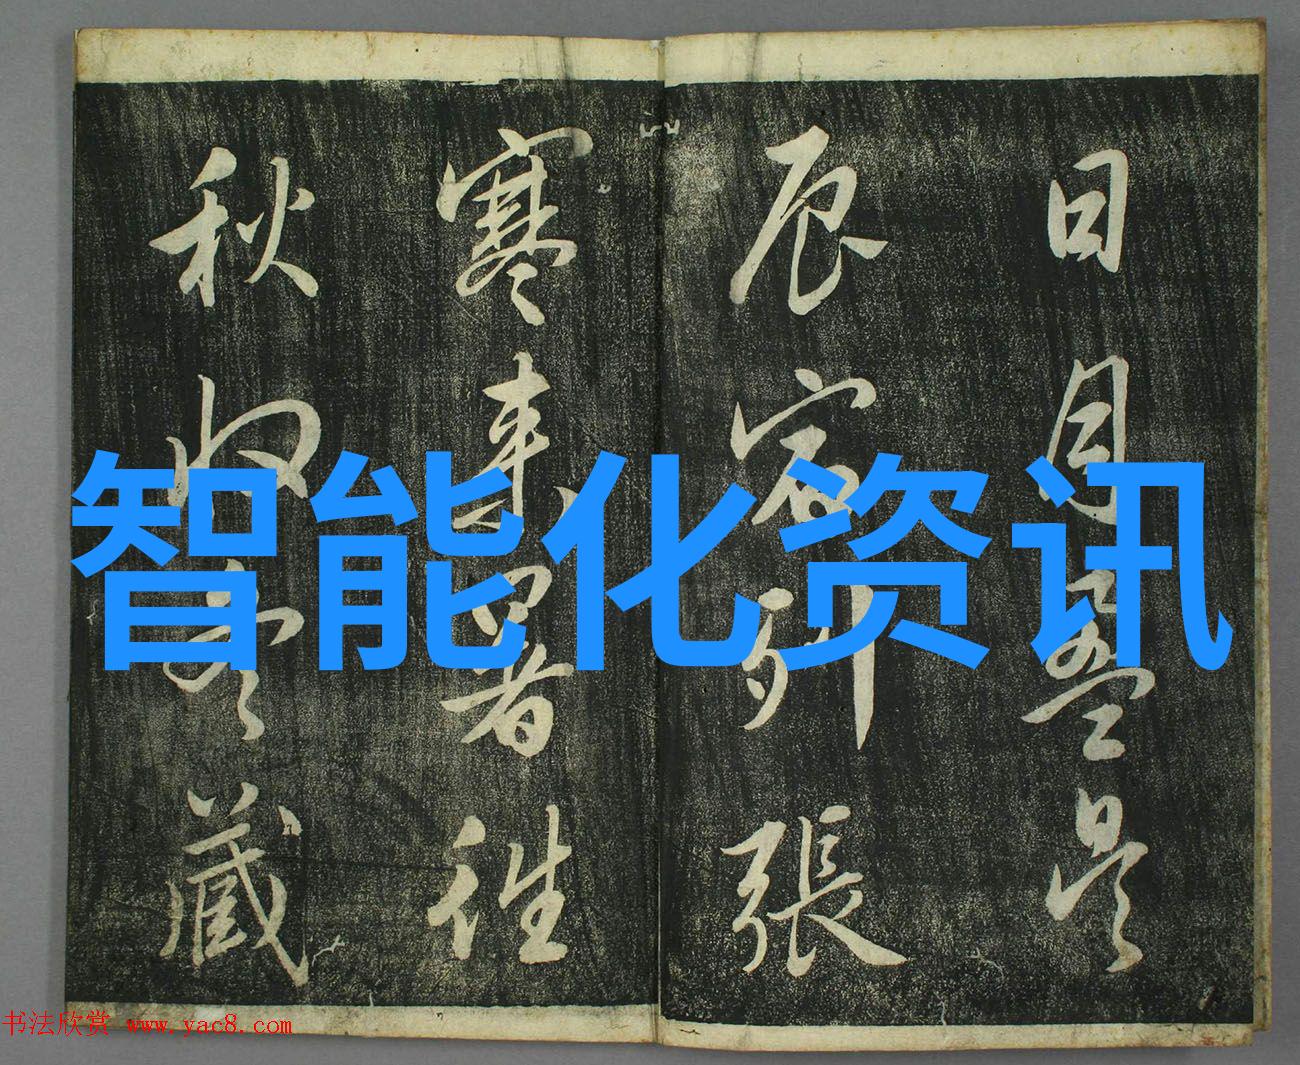 日月盈昃
辰宿列張
寒來暑往
秋收冬藏
智能化资讯
书法欣赏 www.yac8.com